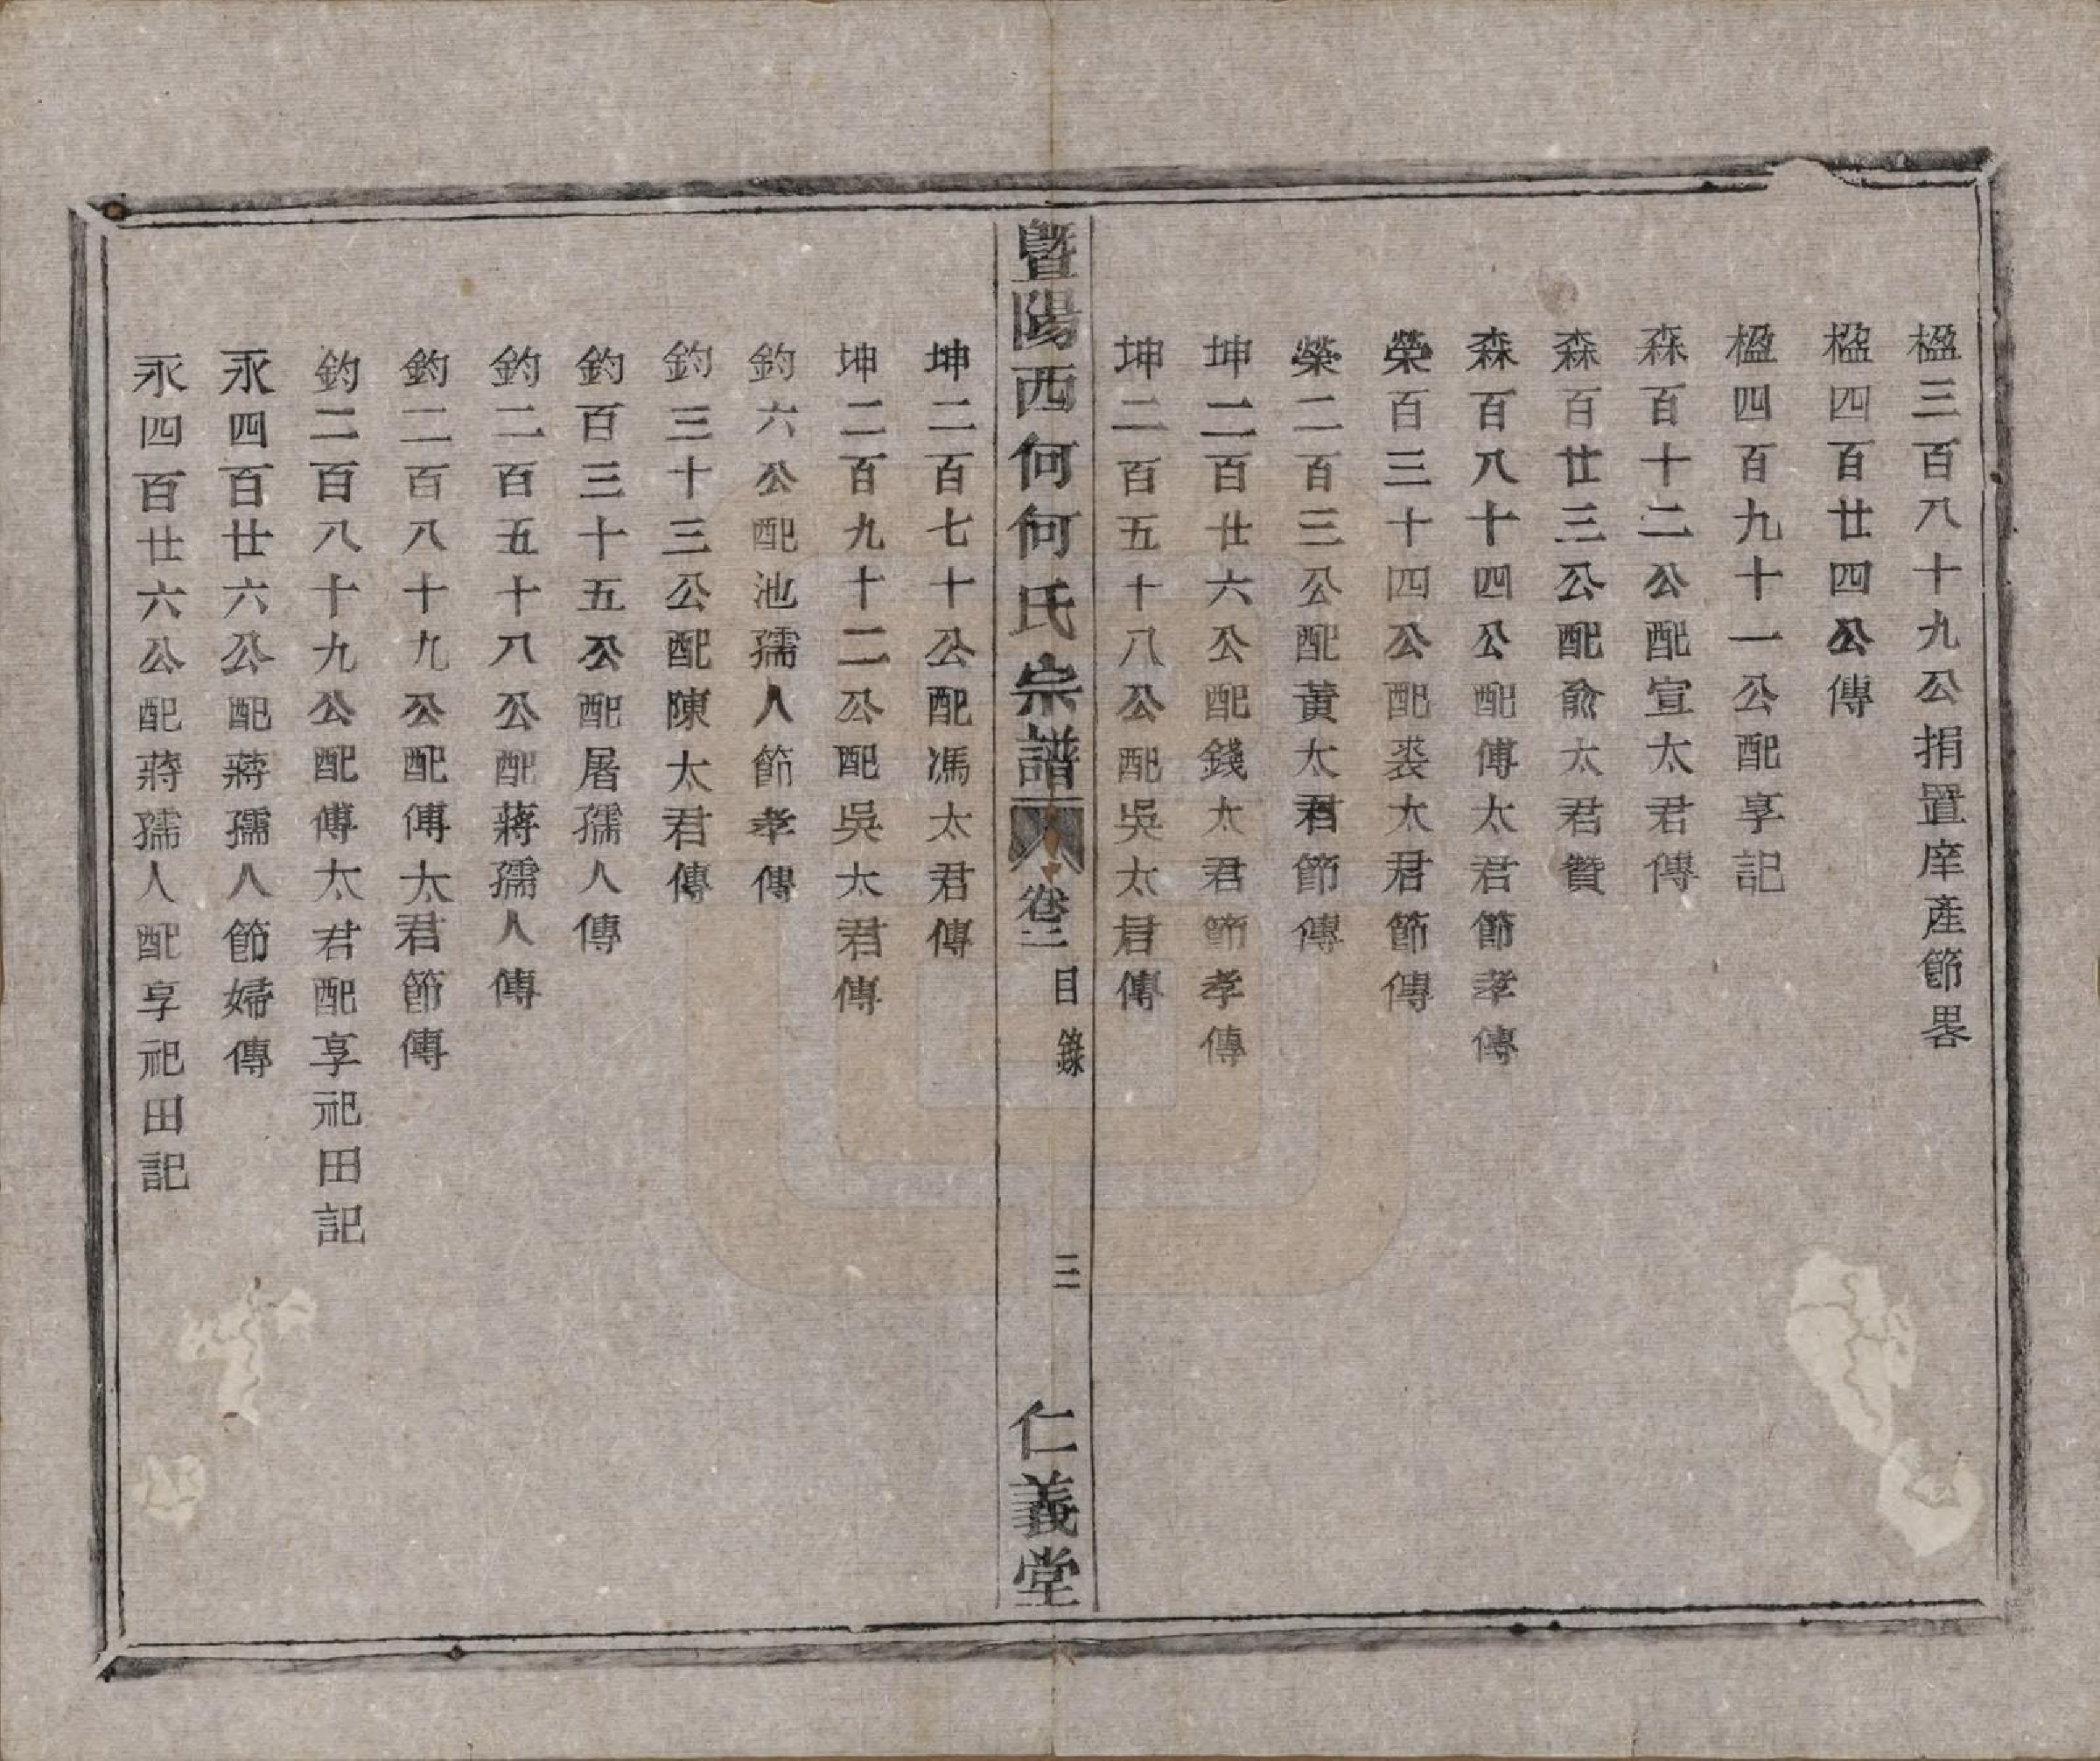 楹三百八十九公捐置庠產節畧
楹四百廿四公傳
楹四百九十一公配享記
森百十二公配宣太君傳
森百廿三公配俞太君贊
森百八十四公配傅太君節孝傳
榮百三十四公配裘太君節傳
榮二百三公配黃太君節傳
坤二百廿六公配錢太君節孝傳
坤二百五十八公配吳太君傳
暨陽西何何氏宗譜 卷二 目錄 三 仁義堂
坤二百七十公配馮太君傳
坤二百九十二公配吳太君傳
釣六公配池孺人節孝傳
釣三十三公配陳太君傳
釣百三十五公配屠孺人傳
釣二百五十八公配蔣孺人傳
釣二百八十九公配傅太君節傳
釣二百八十九公配傅太君配享祀田記
永四百廿六公配蔣孺人節婦傳
永四百廿六公配蔣孺人配享祀田記